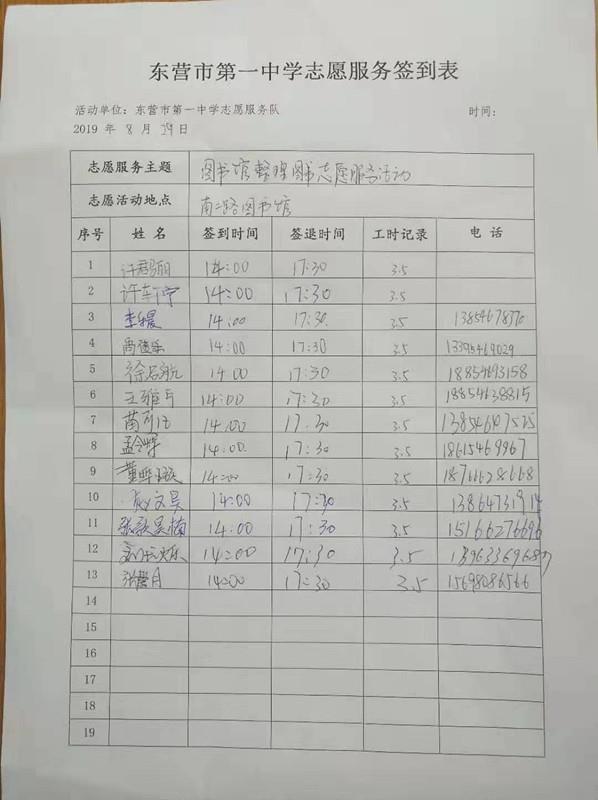 东营市第一中学志愿服务签到表
活动单位：东营市第一中学志愿服务队 时间：
2019 年 8 月 29 日
志愿服务主题 图书馆整理图书志愿服务活动
志愿活动地点 南二路图书馆
序号 姓 名 签到时间 签退时间 工时记录 电 话
1 14:00 17:30 3.5
2 14:00 17:30 3.5
3 14:00 17:30 3.5
4 14:00 17:30 3.5 13395469029
5 徐启航 14:00 17:30 3.5 18854693158
6 王雅丹 14:00 17:30 3.5 18854638815
7 14:00 17:30 3.5 13854647525
8 孟令辉 14:00 17:30 3.5 18615469967
9 董 14:00 17:30 3.5 18766628668
10 赵文昊 14:00 17:30 3.5
11 张歆昊楠 14:00 17:30 3.5 15166276696
12 14:00 17:30 3.5
13 张馨月 14:00 17:30 3.5 15698086566
14
15
16
17
18
19